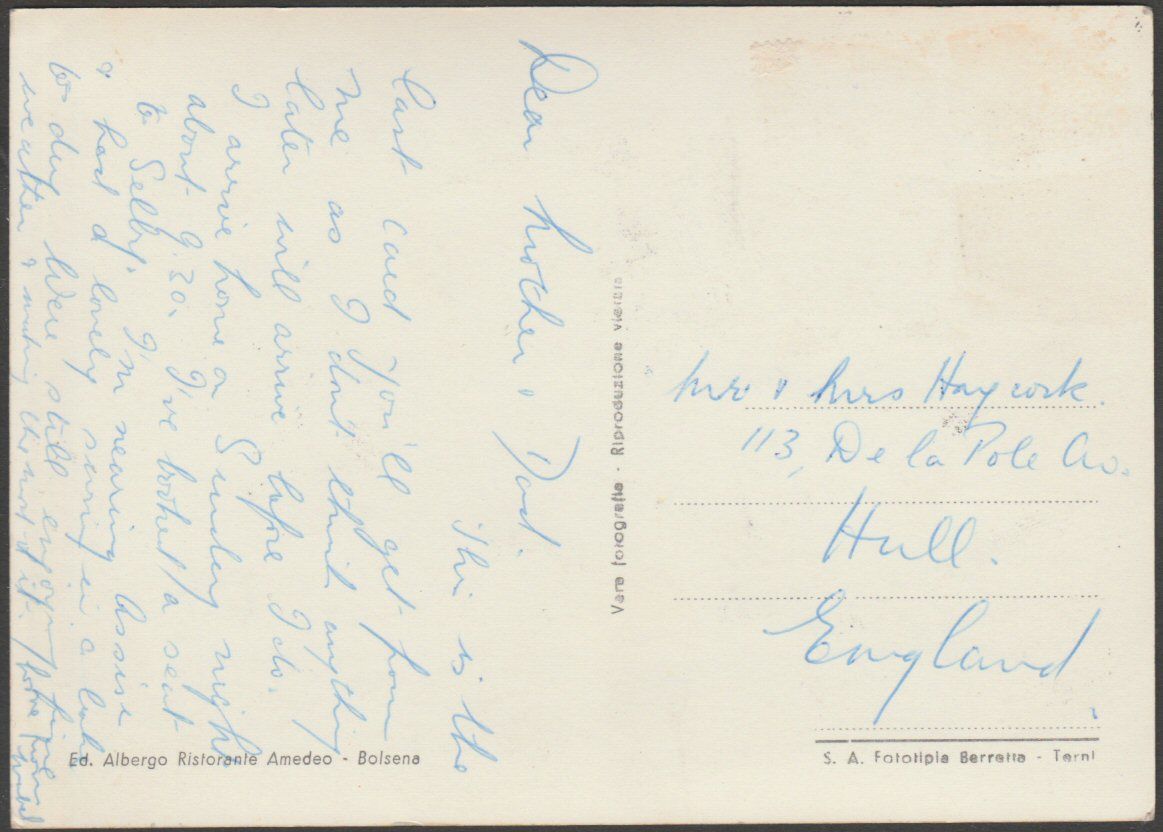 Dear Mother & Dad.
This is the
last card you'll get from
me as I don't think anything
later will arrive before I do.
I arrive home a Sunday night
about 9.30. I've booked a seat
to Selby. I'm nearing Assisi
& had a lovely swim in a lake
to day. We're still enjoying fine
weather & making the most of it.
Love from
Mr & Mrs Haycock.
113, De la Pole Av.
Hull.
England.
Vera fotografia - Riproduzione vietata
Ed. Albergo Ristorante Amedeo - Bolsena
S. A. Fototipia Berretta - Terni